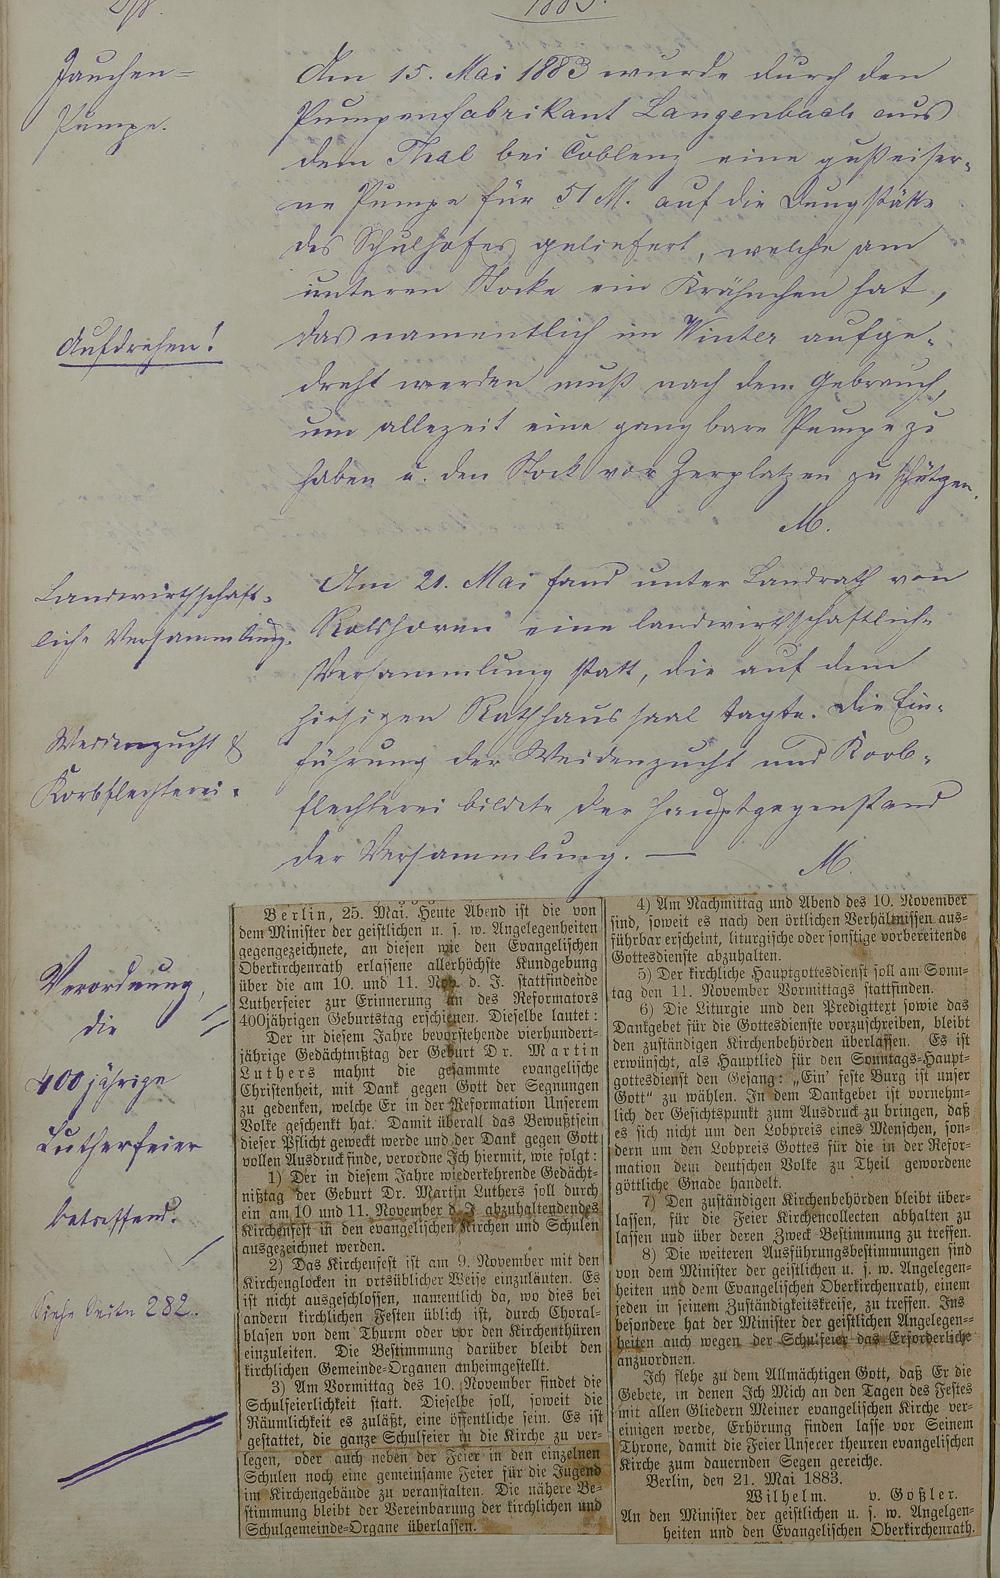 1883.
Jauchen-
Pumpe.
Am 15. Mai 1883 wurde durch den
Pumpenfabrikant Langenbach aus
dem Thal bei Coblenz eine gußeiser-
ne Pumpe für 51 M. auf die Dungstätte
des Schulhofes geliefert, welche am
unteren Stocke ein Krähnchen hat,
Aufdrehen!
das namentlich im Winter aufge-
dreht werden muß nach dem Gebrauch,
um allezeit eine gangbare Pumpe zu
haben u. den Stock vor Zerplatzen zu schützen.
M.
Landwirthschaft-
liche Versammlung.
Am 21. Mai fand unter Landrath von
Rolshoven eine landwirthschaftliche
Versammlung statt, die auf dem
hiesigen Rathhaussaal tagte. Die Ein-
Weidenzucht &
Korbflechterei.
führung der Weidenzucht und Korb-
flechterei bildete der Hauptgegenstand
der Versammlung. —
M.
Verordnung,
die
400 jährige
Lutherfeier
betreffend.
Siehe Seite 282.
Berlin, 25. Mai. Heute Abend ist die von
dem Minister der geistlichen u. s. w. Angelegenheiten
gegengezeichnete, an diesen wie den Evangelischen
Oberkirchenrath erlassene allerhöchste Kundgebung
über die am 10. und 11. Nov. d. J. stattfindende
Lutherfeier zur Erinnerung an des Reformators
400jährigen Geburtstag erschienen. Dieselbe lautet:
Der in diesem Jahre bevorstehende vierhundert-
jährige Gedächtnißtag der Geburt Dr. Martin
Luthers mahnt die gesammte evangelische
Christenheit, mit Dank gegen Gott der Segnungen
zu gedenken, welche Er in der Reformation Unserem
Volke geschenkt hat. Damit überall das Bewußtsein
dieser Pflicht geweckt werde und der Dank gegen Gott
vollen Ausdruck finde, verordne Ich hiermit, wie folgt:
1) Der in diesem Jahre wiederkehrende Gedächt-
nißtag der Geburt Dr. Martin Luthers soll durch
ein am 10 und 11. November d. J abzuhaltendendes
Kirchenfest in den evangelischen Kirchen und Schulen
ausgezeichnet werden.
2) Das Kirchenfest ist am 9. November mit den
Kirchenglocken in ortsüblicher Weise einzuläuten. Es
ist nicht ausgeschlossen, namentlich da, wo dies bei
andern kirchlichen Festen üblich ist, durch Choral-
blasen von dem Thurm oder vor den Kirchenthüren
einzuleiten. Die Bestimmung darüber bleibt den
kirchlichen Gemeinde-Organen anheimgestellt.
3) Am Vormittag des 10. November findet die
Schulfeierlichkeit statt. Dieselbe soll, soweit die
Räumlichkeit es zuläßt, eine öffentliche sein. Es ist
gestattet, die ganze Schulfeier in die Kirche zu ver-
legen, oder auch neben der Feier in den einzelnen
Schulen noch eine gemeinsame Feier für die Jugend
im Kirchengebäude zu veranstalten. Die nähere Be-
stimmung bleibt der Vereinbarung der kirchlichen und
Schulgemeinde-Organe überlassen.
4) Am Nachmittag und Abend des 10. November
sind, soweit es nach den örtlichen Verhältnissen aus-
führbar erscheint, liturgische oder sonstige vorbereitende
Gottesdienste abzuhalten.
5) Der kirchliche Hauptgottesdienst soll am Sonn-
tag den 11. November Vormittags stattfinden.
6) Die Liturgie und den Predigttext sowie das
Dankgebet für die Gottesdienste vorzuschreiben, bleibt
den zuständigen Kirchenbehörden überlassen. Es ist
erwünscht, als Hauptlied für den Sonntags-Haupt-
gottesdienst den Gesang: „Ein' feste Burg ist unser
Gott“ zu wählen. In dem Dankgebet ist vornehm-
lich der Gesichtspunkt zum Ausdruck zu bringen, daß
es sich nicht um den Lobpreis eines Menschen, son-
dern um den Lobpreis Gottes für die in der Refor-
mation dem deutschen Volke zu Theil gewordene
göttliche Gnade handelt.
7) Den zuständigen Kirchenbehörden bleibt über-
lassen, für die Feier Kirchencollecten abhalten zu
lassen und über deren Zweck Bestimmung zu treffen.
8) Die weiteren Ausführungsbestimmungen sind
von dem Minister der geistlichen u. s. w. Angelegen-
heiten und dem Evangelischen Oberkirchenrath, einem
jeden in seinem Zuständigkeitskreise, zu treffen. Ins
besondere hat der Minister der geistlichen Angelegen-
heiten auch wegen der Schulfeier das Erforderliche
anzuordnen.
Ich flehe zu dem Allmächtigen Gott, daß Er die
Gebete, in denen Ich Mich an den Tagen des Festes
mit allen Gliedern Meiner evangelischen Kirche ver-
einigen werde, Erhörung finden lasse vor Seinem
Throne, damit die Feier Unserer theuren evangelischen
Kirche zum dauernden Segen gereiche.
Berlin, den 21. Mai 1883.
Wilhelm. v. Goßler.
An den Minister der geistlichen u. s. w. Angelgen-
heiten und den Evangelischen Oberkirchenrath.